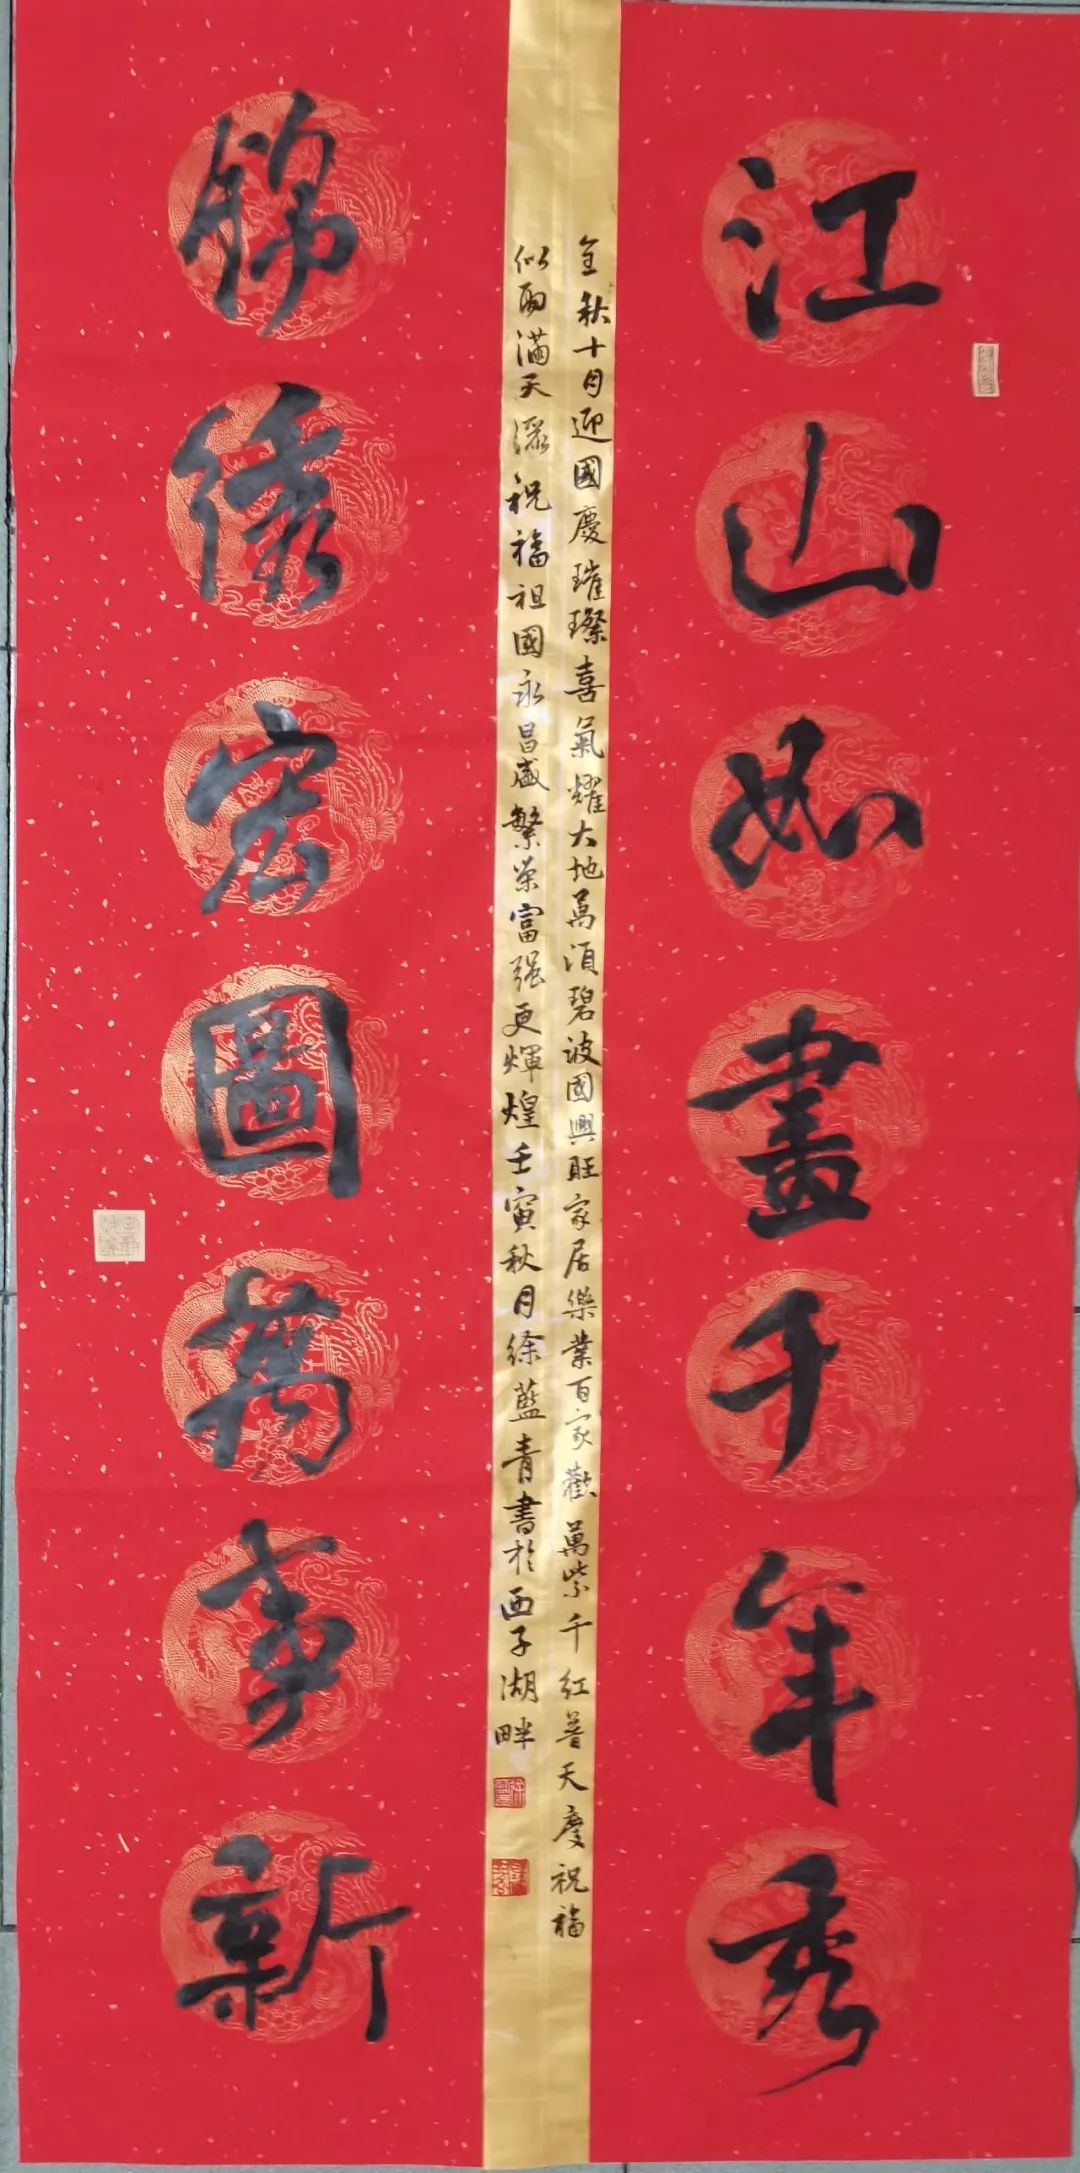 江山如畫千年秀
金秋十月迎國慶璀璨喜氣耀大地萬頃碧波國興旺家居樂業百家歡萬紫千紅普天慶祝福
似雨滿天灑祝福祖國永昌盛繁榮富强更輝煌壬寅秋月徐藍青書於西子湖畔
錦绣宏圖萬事新